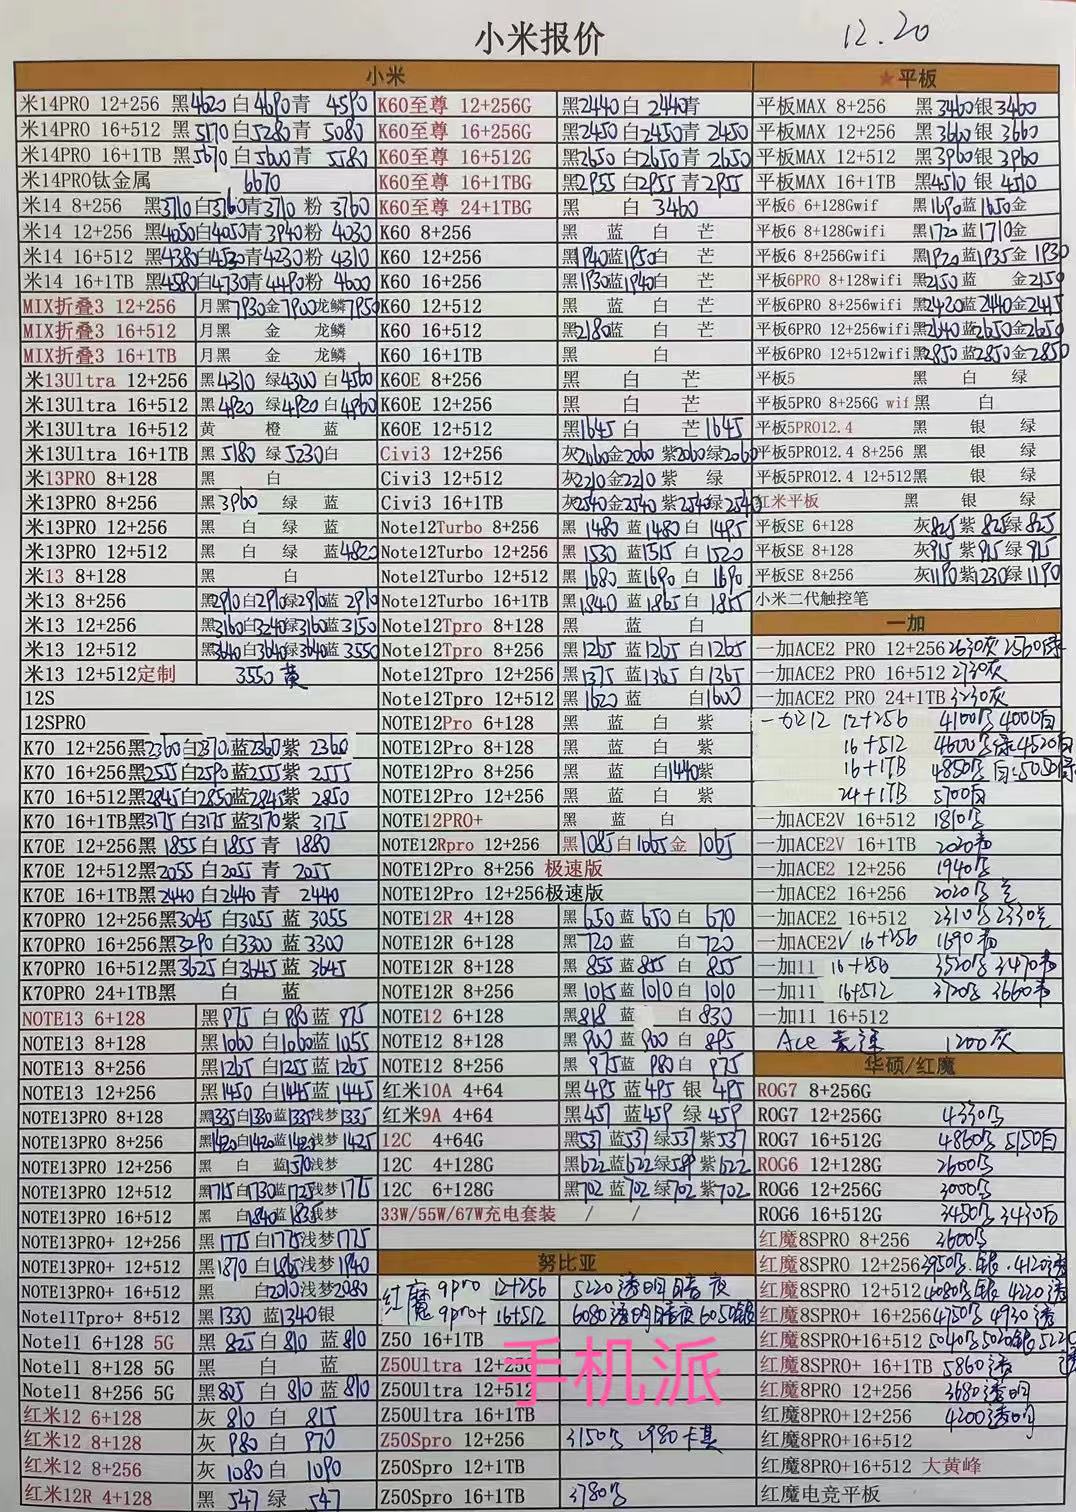 小米报价
12.20
小米
米14PRO 12+256 黑4620 白4690 青 4590
米14PRO 16+512 黑5170 白5280 青 5080
米14PRO 16+1TB 黑5670 白5600 青 5580
米14PRO钛金属 6670
米14 8+256 黑3710 白3760 青3710 粉 3760
米14 12+256 黑4050 白4050 青3940 粉 4030
米14 16+512 黑4380 白4530 青4230 粉 4310
米14 16+1TB 黑4580 白4730 青4490 粉 4600
MIX折叠3 12+256 月黑7930 金7900 龙鳞7950
MIX折叠3 16+512 月黑 金 龙鳞
MIX折叠3 16+1TB 月黑 金 龙鳞
米13Ultra 12+256 黑4310 绿4300 白4560
米13Ultra 16+512 黑4920 绿4920 白4960
米13Ultra 16+512 黄 橙 蓝
米13Ultra 16+1TB 黑5180 绿5230 白
米13PRO 8+128 黑 白
米13PRO 8+256 黑3960 绿 蓝
米13PRO 12+256 黑 白 绿 蓝
米13PRO 12+512 黑 白 绿 蓝4820
米13 8+128 黑 白
米13 8+256 黑2910 白2910 绿2910 蓝 2910
米13 12+256 黑3160 白3240 绿3160 蓝 3150
米13 12+512 黑3640 白3640 绿3640 蓝 3550
米13 12+512定制 3550 黄
12S
12SPRO
K70 12+256黑2360 白2370 蓝2360 紫 2360
K70 16+256黑2555 白2590 蓝2555 紫 2555
K70 16+512黑2845 白2850 蓝2845 紫 2850
K70 16+1TB黑3175 白3175 蓝3170 紫 3175
K70E 12+256黑 1855 白1855 青 1880
K70E 12+512黑2055 白2055 青 2055
K70E 16+1TB黑2440 白2440 青 2440
K70PRO 12+256黑3045 白3055 蓝 3055
K70PRO 16+256黑3290 白3300 蓝 3300
K70PRO 16+512黑3625 白3645 蓝 3645
K70PRO 24+1TB黑 白 蓝
NOTE13 6+128 黑975 白980 蓝 975
NOTE13 8+128 黑1060 白1060 蓝1055
NOTE13 8+256 黑1265 白1255 蓝1265
NOTE13 12+256 黑1450 白1445 蓝1445
NOTE13PRO 8+128 黑1335 白1330 蓝1335 浅梦1335
NOTE13PRO 8+256 黑1420 白1420 蓝1425 浅梦1425
NOTE13PRO 12+256 黑 白 蓝1570 浅梦
NOTE13PRO 12+512 黑1715 白1730 蓝1725 浅梦1775
NOTE13PRO 16+512 黑 白1840 蓝1835 浅梦
NOTE13PRO+ 12+256 黑1775 白1775 浅梦1775
NOTE13PRO+ 12+512 黑1870 白1865 浅梦1940
NOTE13PRO+ 16+512 黑 白2010 浅梦2080
Note11Tpro+ 8+512 黑1330 蓝1340 银
Note11 6+128 5G 黑825 白810 蓝810
Note11 8+128 5G 黑 白 蓝
Note11 8+256 5G 黑805 白810 蓝810
红米12 6+128 灰 810 白 815
红米12 8+128 灰 980 白 970
红米12 8+256 灰 1080 白 1090
红米12R 4+128 黑 547 绿 547
K60至尊 12+256G 黑2440 白 2440 青
K60至尊 16+256G 黑2450 白2450 青 2450
K60至尊 16+512G 黑2650 白2650 青 2650
K60至尊 16+1TBG 黑2955 白2955 青2955
K60至尊 24+1TBG 黑 白 3460
K60 8+256 黑 蓝 白 芒
K60 12+256 黑1940 蓝1950 白 芒
K60 16+256 黑1930 蓝1940 白 芒
K60 12+512 黑 蓝 白 芒
K60 16+512 黑2180 蓝 白 芒
K60 16+1TB 黑 白
K60E 8+256 黑 白 芒
K60E 12+256 黑 白 芒
K60E 12+512 黑1645 白 芒1645
Civi3 12+256 灰2060 金2060 紫2060 绿2060
Civi3 12+512 灰2210 金2210 紫 绿
Civi3 16+1TB 灰2540 金2540 紫2540 绿2540
Note12Turbo 8+256 黑 1480 蓝1480 白 1495
Note12Turbo 12+256 黑 1530 蓝1515 白 1520
Note12Turbo 12+512 黑 1680 蓝1690 白 1690
Note12Turbo 16+1TB 黑1840 蓝1865 白 1855
Note12Tpro 8+128 黑 蓝 白
Note12Tpro 8+256 黑 1265 蓝1265 白1265
Note12Tpro 12+256 黑 1375 蓝1365 白1365
Note12Tpro 12+512 黑1620 蓝 白1600
NOTE12Pro 6+128 黑 蓝 白 紫
NOTE12Pro 8+128 黑 蓝 白 紫
NOTE12Pro 8+256 黑 蓝 白1440紫
NOTE12Pro 12+256 黑 蓝 白 紫
NOTE12PRO+ 黑 蓝 白
NOTE12Rpro 12+256 黑1085 白1065 金 1065
NOTE12Pro 8+256 极速版
NOTE12Pro 12+256极速版
NOTE12R 4+128 黑 650 蓝 650 白 670
NOTE12R 6+128 黑720 蓝 白720
NOTE12R 8+128 黑 855 蓝855 白 855
NOTE12R 8+256 黑 1015 蓝1010 白 1010
NOTE12 6+128 黑818 蓝 白830
NOTE12 8+128 黑 900 蓝 900 白 895
NOTE12 8+256 黑 975 蓝 980 白 975
红米10A 4+64 黑495 蓝495 银 495
红米9A 4+64 黑457 蓝459 绿 459
12C 4+64G 黑537 蓝537 绿537 紫537
12C 4+128G 黑622 蓝622 绿589 紫622
12C 6+128G 黑702 蓝702 绿702 紫702
33W/55W/67W充电套装 / /
努比亚
红魔 9pro 12+256 5220透明 暗夜
9pro+ 16+512 6080透明暗夜 6050银
Z50 16+1TB
Z50Ultra 12+256
Z50Ultra 12+512
Z50Ultra 16+1TB
Z50Spro 12+256 3150 2980
Z50Spro 12+1TB
Z50Spro 16+1TB 3780
★平板
平板MAX 8+256 黑3460 银3460
平板MAX 12+256 黑3660 银 3660
平板MAX 12+512 黑3960 银 3960
平板MAX 16+1TB 黑4510 银 4510
平板6 6+128Gwif 黑1690 蓝1650 金
平板6 8+128Gwifi 黑1720 蓝1710 金
平板6 8+256Gwifi 黑1920 蓝1935 金 1930
平板6PRO 8+128wifi 黑2150 蓝 金2150
平板6PRO 8+256wifi 黑2420 蓝2440 金2445
平板6PRO 12+256wifi黑2640 蓝2650 金2650
平板6PRO 12+512wifi黑2850 蓝2850 金2850
平板5 黑 白 绿
平板5PRO 8+256G wif 黑 白
平板5PRO12.4 黑 银 绿
平板5PRO12.4 8+256 黑 银 绿
平板5PRO12.4 12+512黑 银 绿
红米平板 黑 银 绿
平板SE 6+128 灰825 紫 825 绿 825
平板SE 8+128 灰915 紫 915 绿 915
平板SE 8+256 灰1190 紫1230 绿1190
小米二代触控笔
一加
一加ACE2 PRO 12+256 2630灰 2560绿
一加ACE2 PRO 16+512 2730灰
一加ACE2 PRO 24+1TB 3230灰
一加12 12+256 4100 4000白
16+512 4600 绿4520白
16+1TB 4850 白:5050绿
24+1TB 5700白
一加ACE2V 16+512 1810
一加ACE2V 16+1TB 2020
一加ACE2 12+256 1940
一加ACE2 16+256 2020
一加ACE2 16+512 2310 2330
一加ACE2V 16+256 1690
一加11 16+256 3520 3470
一加11 16+512 3720 3660
一加11 16+512
Ace 竞速 1200灰
华硕/红魔
ROG7 8+256G
ROG7 12+256G 4330
ROG7 16+512G 4860 5150白
ROG6 12+128G 2600
ROG6 12+256G 3000
ROG6 16+512G 3450 3430白
红魔8SPRO 8+256 3600
红魔8SPRO 12+256 3950 银 4120透
红魔8SPRO 12+512 4080 银 4220透
红魔8SPRO+ 16+256 4750 4930透
红魔8SPRO+16+512 5040 5020银 5220透
红魔8SPRO+ 16+1TB 5860透
红魔8PRO 12+256 3680透明
红魔8PRO+12+256 4200透明
红魔8PRO+16+512
红魔8PRO+16+512 大黄峰
红魔电竞平板
手机派